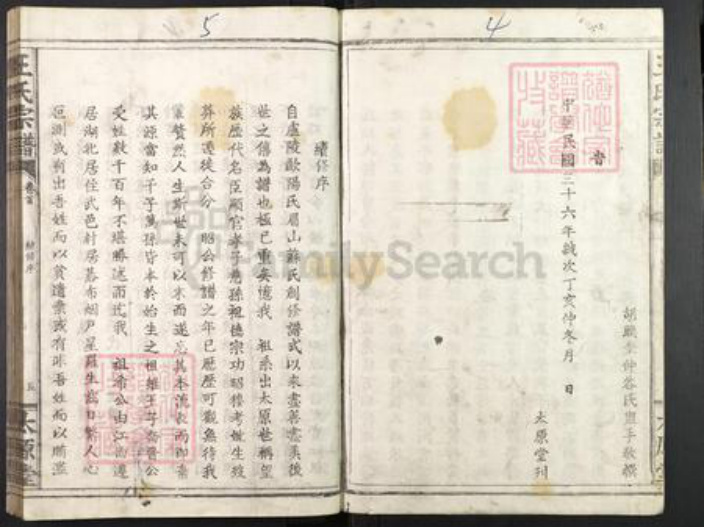 4
胡職生仲谷氏盥手敬撰
中華民國三十六年歲次丁亥仲冬月 日
太原堂刋
王氏宗譜
太原堂
5
續修序
自盧陵歐陽氏眉山蘇氏創修譜式以來盡善盡美後
世之傳為譜也極已重矣憶我 祖系出太原世稱望
族歷代名臣顯官孝子慈孫祖德宗功昭穆考妣生歿
葬所遷徙合分 昭公修譜之年已歷歷可觀無待我
贅然人生斯世未可以末而遂忘其本流長而即棄
其源當知子子萬孫皆本於始生之祖維王子喬賁公
受姓數千百年不堪勝述而迄我 祖希公由江西遷
居湖北居住武邑射居暮布烟戶星羅生齒日繁人心
叵測或有出吾姓而以貧遺宗或有非吾姓而以賄濫
王氏宗譜
卷首
續修序
五
太原堂
FamilySearch